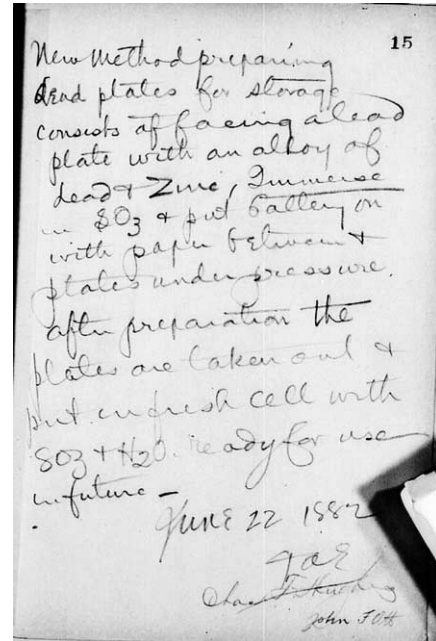 15
New Method preparing
Lead plates for storage
consists of facing a lead
plate with an alloy of
Lead & Zinc, Immerse
in SO3 & put battery on
with paper between &
plates under pressure.
after preparation the
plates are taken out &
put in fresh cell with
SO3 + H2O. ready for use
in future —
June 22 1882
TAE
Chas
John F Ott